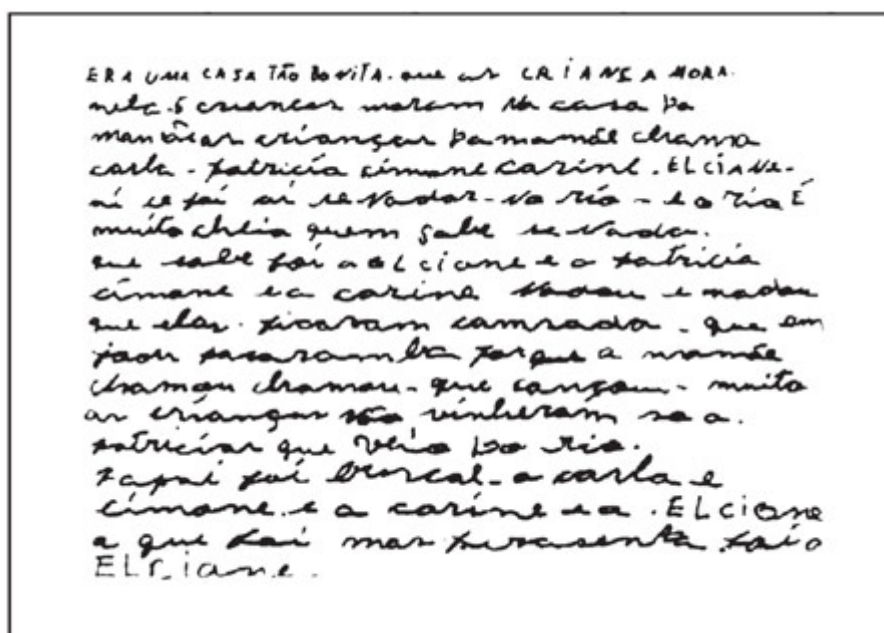 ERA UMA CASA TÃO BONITA. que as CRIANÇA MORA.
nela. 5 criancas moram na casa Da
mamãe as crianças Da mamãe chama
carla - patricía címone carine. ELCÍANE-
aí se foi aí se Nadar - no río - e o río É
muito cheio quem sabe se Nada.
que sabe foi a elcíane e a patricía
címone e a caríne Nadou e nadou
que elas. ficaram camsada - que em
ficaram la porque a mamãe
chamou chamou - que cançou - muito
as críanças não vinheram so a.
patricías que veio Do rio.
Papai foi buscal - a carla e
címone. e a caríne e a. ELciane
a que foi mas foi a
ELciane.